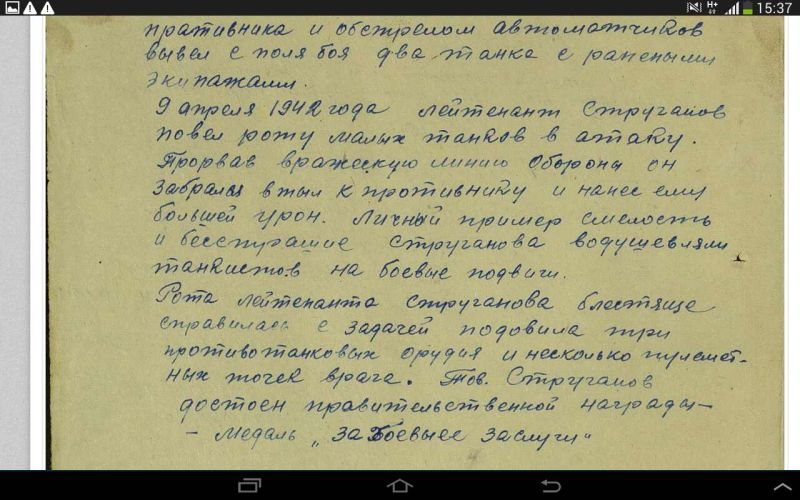 15:37
пративника и обстрелом автоматчиков
вывел с поля боя два танка с ранеными
экипажами.
9 апреля 1942 года лейтенант Струганов
повел роту малых танков в атаку.
Прорвав вражескую линию обороны он
забрался втыл к противнику и нанес ему
большей урон. Личный пример смелость
и бесстрашие Струганова водушевляли
танкистов на боевые подвиги.
Рота лейтенанта Струганова блестяще
справилась с задачей подовила три
противотанковых орудия и несколько пулемет-
ных точек врага. Тов. Струганов
достоен правительственной награды-
- медаль „За боевыее заслуги"